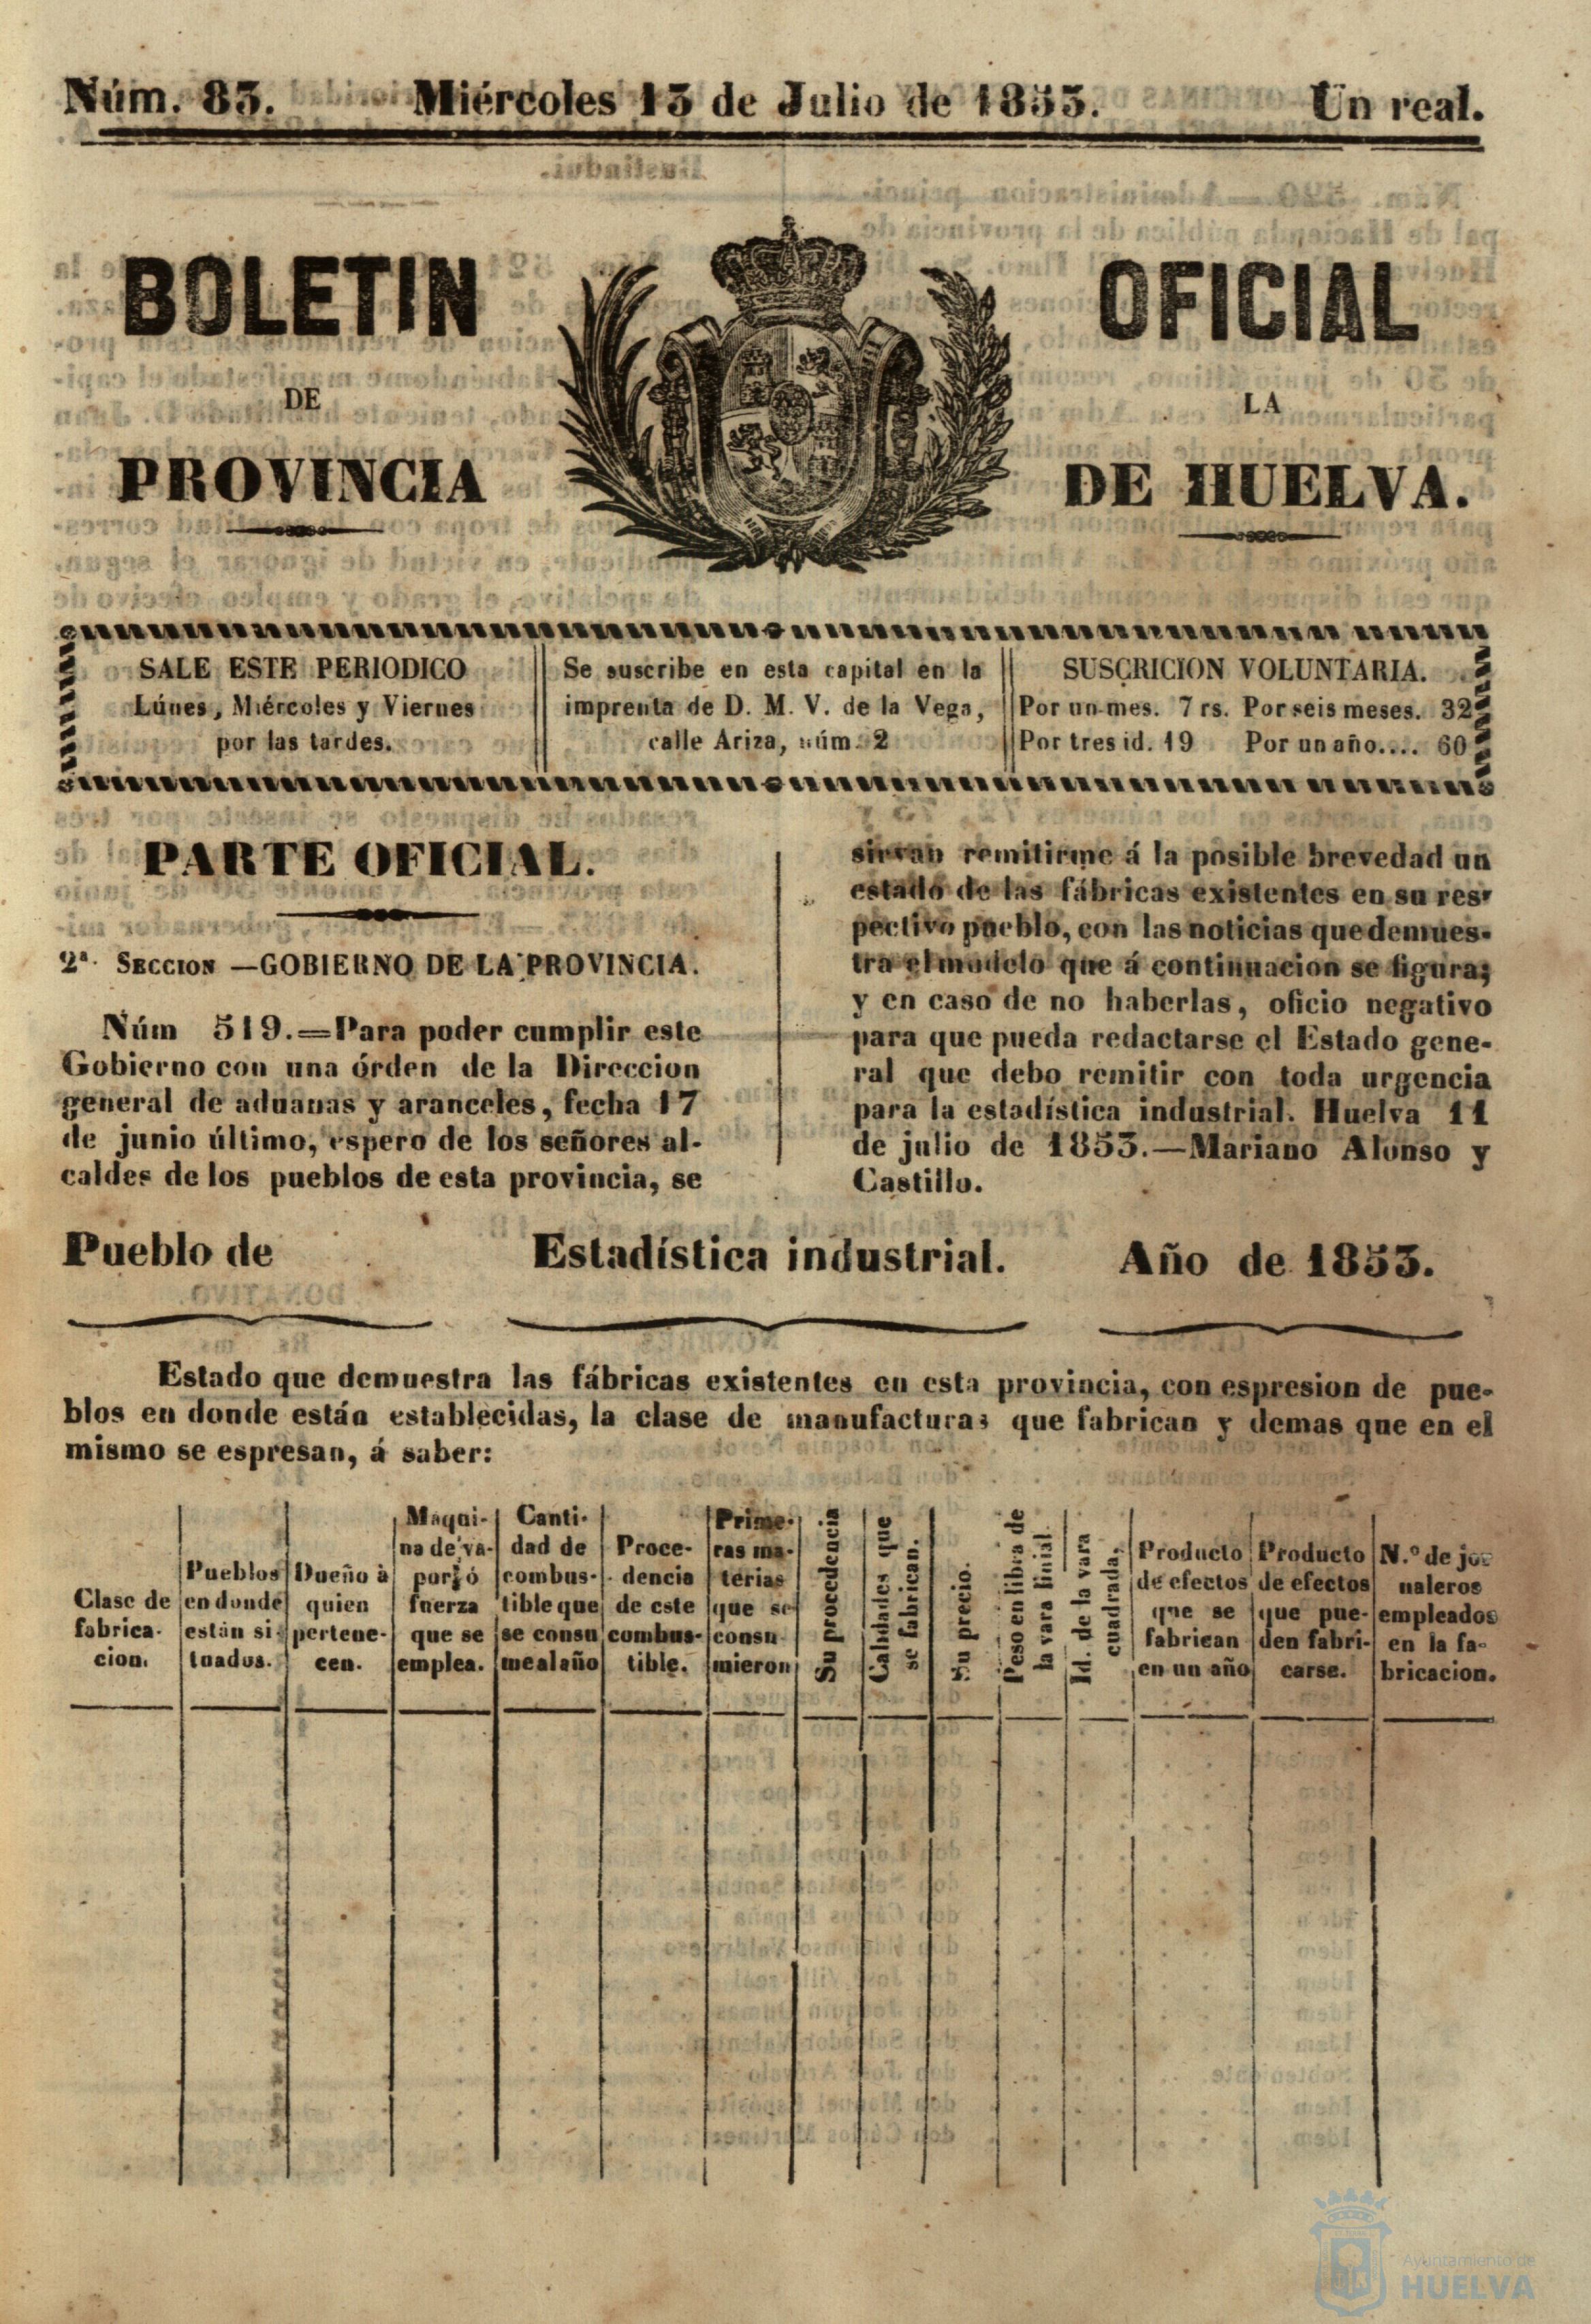 Núm. 83. Miércoles 13 de Julio de 1853. Un real.
BOLETIN OFICIAL
DE LA
PROVINCIA DE HUELVA.
SALE ESTE PERIODICO
Lúnes, Miércoles y Viernes
por las tardes.
Se suscribe en esta capital en la
imprenta de D. M. V. de la Vega,
calle Ariza, núm. 2
SUSCRICION VOLUNTARIA.
Por un mes. 7 rs. Por seis meses. 32
Por tres id. 19 Por un año.... 60
PARTE OFICIAL.
2ª. SECCION —GOBIERNO DE LA PROVINCIA.
Núm 519.=Para poder cumplir este
Gobierno con una órden de la Direccion
general de aduanas y aranceles, fecha 17
de junio último, espero de los señores al-
caldes de los pueblos de esta provincia, se
sirvan remitirme á la posible brevedad un
estado de las fábricas existentes en su res-
pectivo pueblo, con las noticias que demues-
tra el modelo que á continuacion se figura;
y en caso de no haberlas, oficio negativo
para que pueda redactarse el Estado gene-
ral que debo remitir con toda urgencia
para la estadística industrial. Huelva 11
de julio de 1853.—Mariano Alonso y
Castillo.
Pueblo de Estadística industrial. Año de 1853.
Estado que demuestra las fábricas existentes en esta provincia, con espresion de pue-
blos en donde están establecidas, la clase de manufacturas que fabrican y demas que en el
mismo se espresan, á saber:
Clase de
fabrica-
cion.
Pueblos
en donde
están si-
tuados.
Dueño à
quien
pertene-
cen.
Maqui-
na de va-
por ó
fuerza
que se
emplea.
Canti-
dad de
combus-
tible que
se consu
me al año
Proce-
dencia
de este
combus-
tible.
Prime-
ras ma-
terias
que se
consu-
mieron
Su procedencia
Calidades que
se fabrican.
Su precio.
Peso en libra de
la vara linial.
Id. de la vara
cuadrada.
Producto
de efectos
que se
fabrican
en un año
Producto
de efectos
que pue-
den fabri-
carse.
N.º de jor
naleros
empleados
en la fa-
bricacion.
Ayuntamiento de
HUELVA